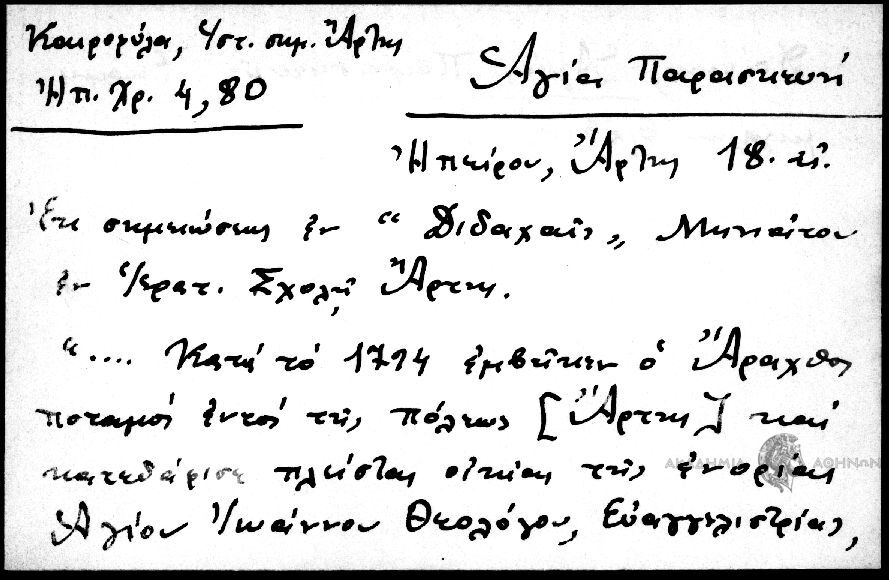 Κακρομύλα, Ὑστ. σημ. Ἄρτης
Ἠπ. Χρ. 4, 80
Ἁγία Παρασκευή
Ἠπείρου, Ἄρτης 18. αἰ.
Ἐκ σημειώσεως ἐν “Διδαχαῖς„ Μηνιάτου
ἐν Ἱερατ. Σχολῇ Ἄρτης.
“.... Κατά τό 1714 ἐμβῆκεν ὁ Ἄραχθος
ποταμός ἐντός τῆς πόλεως [Ἄρτης] καί
κατεδάφισε πλείστας οἰκίας τῆς ἐνορίας
Ἁγίου Ἰωάννου Θεολόγου, Εὐαγγελιστρίας,
ΑΚΑΔΗΜΙΑ ΑΘΗΝΩΝ